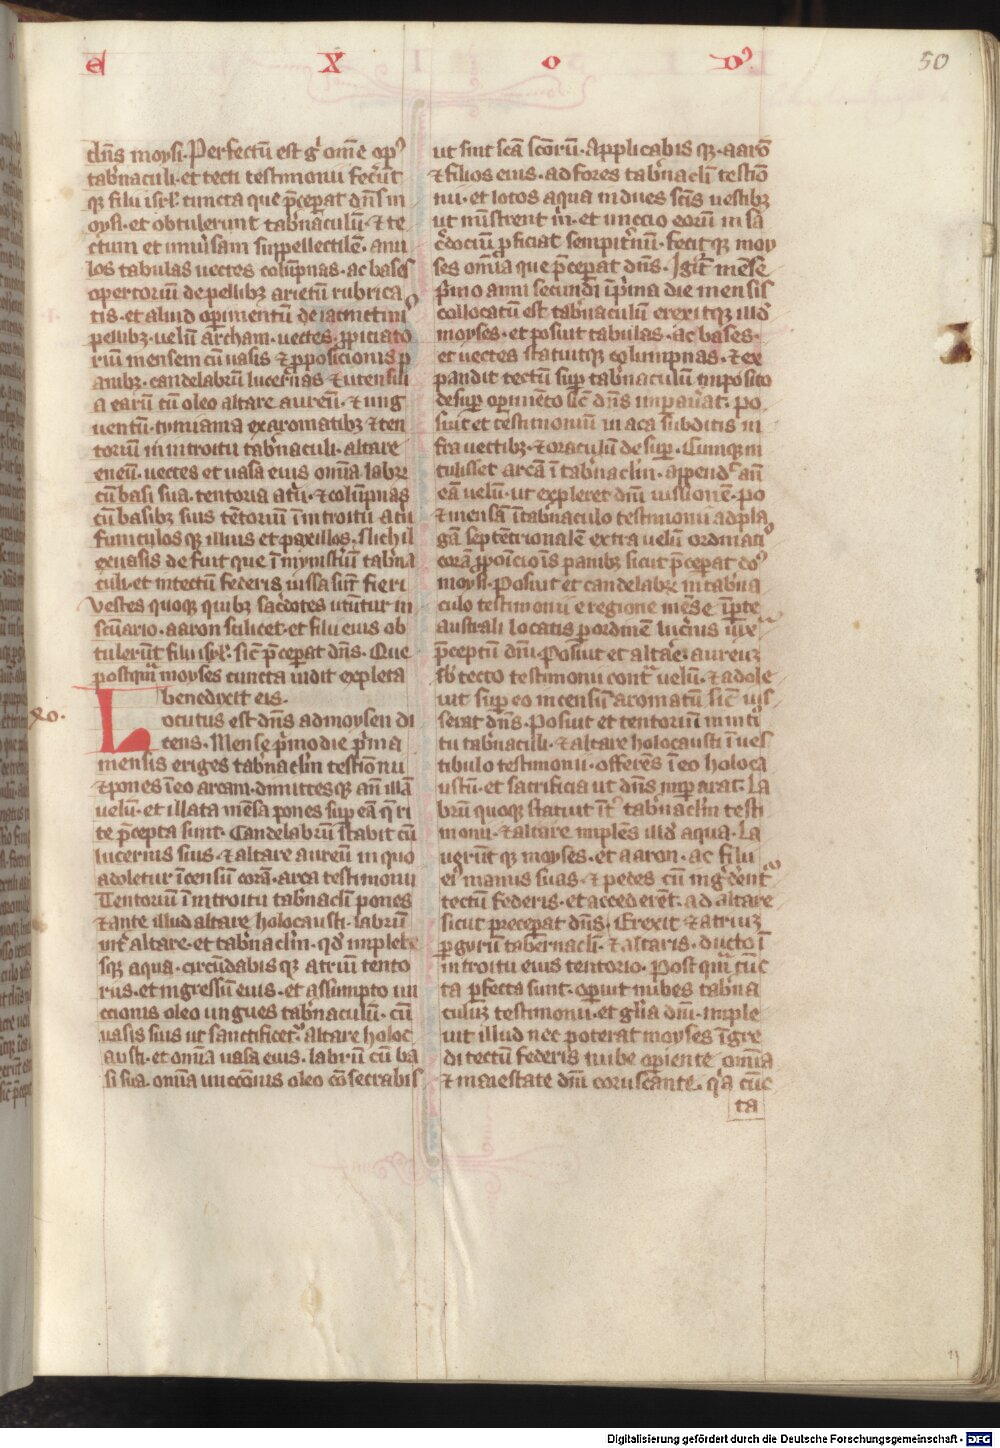 e X o dꝰ
50
dn̄s moysi. Perfectū est gͥ om̄e opꝰ
tab'naculi. et tecti testimonii fec̄ūt
qꝫ filii isrl'. cuncta que p̄cepat dn̄s m
oysi. et obtulerunt tab'naculū. ⁊ te
ctum et uniu'sam suppellectilē. anu
los tabulas uectes colūpnas. ac bases
opertoriū de pellibꝫ arietū rubrica
tis. et aliud opimentū de iacinctinis
pellibꝫ. uelū archam. uectes. ꝓpiciato
riū mensem cū uasis ⁊ ꝓposicionis p
anibꝫ. candelabrū lucernas ⁊ utensili
a earū cū oleo altare aureū. ⁊ ung
uentū. tymiama ex aromatibꝫ ⁊ ten
toriū in introitu tab'naculi. altare
eneū. uectes et uasa eius om̄ia labrꝫ
cū basi sua. tentoria atͥi. ⁊ colūpnas
cū basibꝫ suis tētoriū ī introitu atͥi
funiculos qꝫ illius et paxillos. Nichil
ex uasis defuit que ī mynist'iū tab'na
culi. et in tectū federis iussa sūt fieri
Vestes quoqꝫ quibꝫ sac'dotes utūtur in
scūario. aaron scilicet. et filii eius ob
tulerūt filii isrl'. sic̄ p̄cepat dn̄s. Que
postqͣm moyses cuncta uidit expleta
benedyxit eis.
xo.
Locutus est dn̄s ad moysen di
cens. Mense pͥmo die pͥma
mensis eriges tab'naclm̄ testīonii
⁊ pones ī eo arcam. dimittesqꝫ an̄ illā
uelū. et illata mēsa pones sup eā q̄ ri
te p̄cepta sunt. Candelabrū stabit cū
lucernis suis. ⁊ altare aureū in quo
adoletur īcensū corā. arca testimonii
Tentoriū ī introitu tab'nacli pones
⁊ ante illud altare holocausti. labrū
int' altare. et tab'naclm̄. qd' implebi
sqꝫ aqua. circūdabis qꝫ atriū tento
riis. et ingressū eius. et assumpto un
ctionis oleo ungues tab'naculū. cū
uasis suis ut sanctificetᷣ. altare holoc
austi. et om̄ia uasa eius. labrū cū ba
si sua. om̄ia unccōnis oleo cōsecrabis
ut sint scā scōrū. Applicabis qꝫ. aarō
⁊ filios eius. ad fores tab'nacli testīo
nii. et lotos aqua indues scīs uestibꝫ
ut mīstrent m̄. et unccio eorū in sa
c'dociū ꝓficiat sempit'nū. fecitqꝫ moy
ses om̄ia que p̄cepat dn̄s. Igit' mēse
pͥmo anni secundi ī pͥma die mensis
collocatū est tab'naculū erexitqꝫ illd'
moyses. et posuit tabulas. ac bases.
et uectes statuitqꝫ columpnas. ⁊ ex
pandit tectū sup tab'naculū imposito
desup opimēto sic̄ dn̄s impauͣat. po
suit et testimoniū in aca subditis in
fra uectibꝫ. ⁊ oraculū desup. Cumqꝫ in
tulisset arcā ī tab'naclm̄. appendᵗ an̄
eā uelū. ut expleret dn̄i iussionē. po
⁊ mensā ī tab'naculo testimonii ad pla
gā septētrionalē extra uelū ordinatiꝰ
corā ꝓpoīcioīs panibꝫ sicut p̄cepat doꝰ
moysi. Posuit et candelabrꝫ in tab'na
culo testimonii e regione mēse ī p̱te
australi locatis p̱ ordinē luc'nis iuxͣ
p̄ceptū dn̄i. Posuit et altāe. aureūꝫ
sb' tecto testimonii contͣ uelū. ⁊ adole
uit sup eo incensū aromatū sic̄ ius
serat dn̄s. Posuit et tentoriū in intͥ
tu tab'naculi. ⁊ altare holocausti ī ues
tibulo testimonii. offerēs ī eo holoca
ustū. et sacrificia ut dn̄s imp̱arat. La
brū quoqꝫ statuit īt' tab'naclm̄ testi
monii. ⁊ altare implēs illd' aqua. La
uerūt qꝫ moyses. et aaron. ac filii
eiꝰ manus suas. ⁊ pedes cū ingͥdentᷣ
tectū federis. et accederēt. ad altare
sicut precepat dn̄s. Erexit ⁊ atriūꝫ
p̱ gyrū tabernacli. ⁊ altaris. ducto ī
introitu eius tentorio. Post qͣm cūc
ta p̱fecta sunt. opuit nubes tab'na
culūꝫ testimonii. et gl'ia dn̄i. imple
uit illud nec poterat moyses īgre
di tectū federis nube opiente om̄ia
⁊ maiestate dn̄i coruscante. qͥa cūc
ta
Digitalisierung gefördert durch die Deutsche Forschungsgemeinschaft - DFG